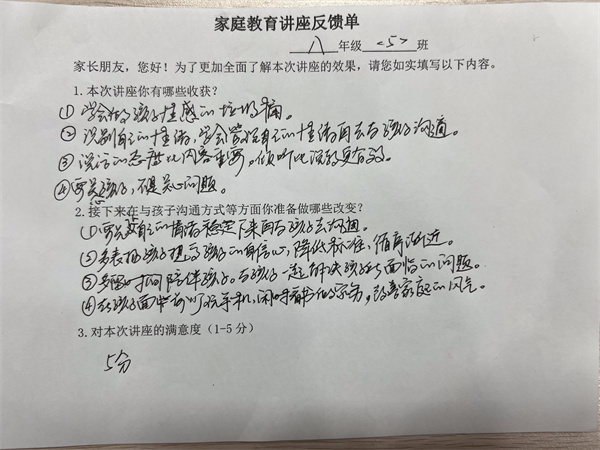 家庭教育讲座反馈单
八 年级 <5> 班
家长朋友，您好！为了更加全面了解本次讲座的效果，请您如实填写以下内容。
1.本次讲座你有哪些收获？
①学会做孩子情感的垃圾桶。
②识别自己的情绪，学会管理自己的情绪再去与孩子沟通。
③说话的态度比内容重要，倾听比说教更有效。
④要关心孩子，不是关心问题。
2.接下来在与孩子沟通方式等方面你准备做哪些改变？
①要先教自己的情绪稳定下来再与孩子去沟通。
②多表扬孩子提高孩子的自信心，降低标准，循序渐近。
③多些时间陪伴孩子。与孩子一起解决孩子面临的问题。
④在孩子面前少玩手机，闲时看书做家务，改善家庭的风气。
3.对本次讲座的满意度（1-5 分）
5分